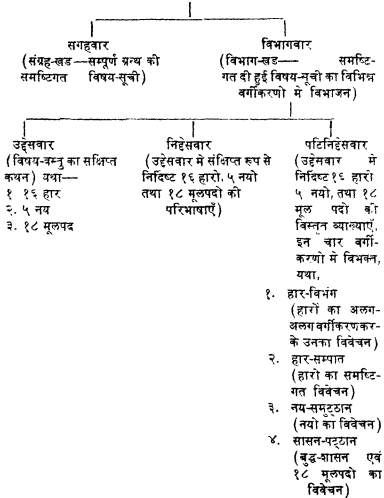 सगहवार
(संग्रह-खड—सम्पूर्ण ग्रन्थ की
समष्टिगत विषय-सूची)
विभागवार
(विभाग-खड— समष्टि-
गत दी हुई विषय-सूची का विभिन्न
वर्गीकरणो मे विभाजन)
उद्देसवार
(विषय-वस्तु का सक्षिप्त
कथन) यथा—
१ १६ हार
२. ५ नय
३. १८ मूलपद
निद्देसवार
(उद्देसवार मे संक्षिप्त रूप से
निर्दिष्ट १६ हारो, ५ नयो
तथा १८ मूलपदो की
परिभाषाएँ)
पटिनिद्देसवार
(उद्देसवार मे
निर्दिष्ट १६ हारो
५ नयो, तथा १८
मूल पदो की
विस्तृत व्याख्याएँ,
इन चार वर्गी-
करणो मे विभक्त,
यथा,
१. हार-विभंग
(हारों का अलग-
अलग वर्गीकरण कर-
के उनका विवेचन)
२. हार-सम्पात
(हारो का समष्टि-
गत विवेचन)
३. नय-समुट्ठान
(नयो का विवेचन)
४. सासन-पट्ठान
(बुद्ध-शासन एवं
१८ मूलपदो का
विवेचन)